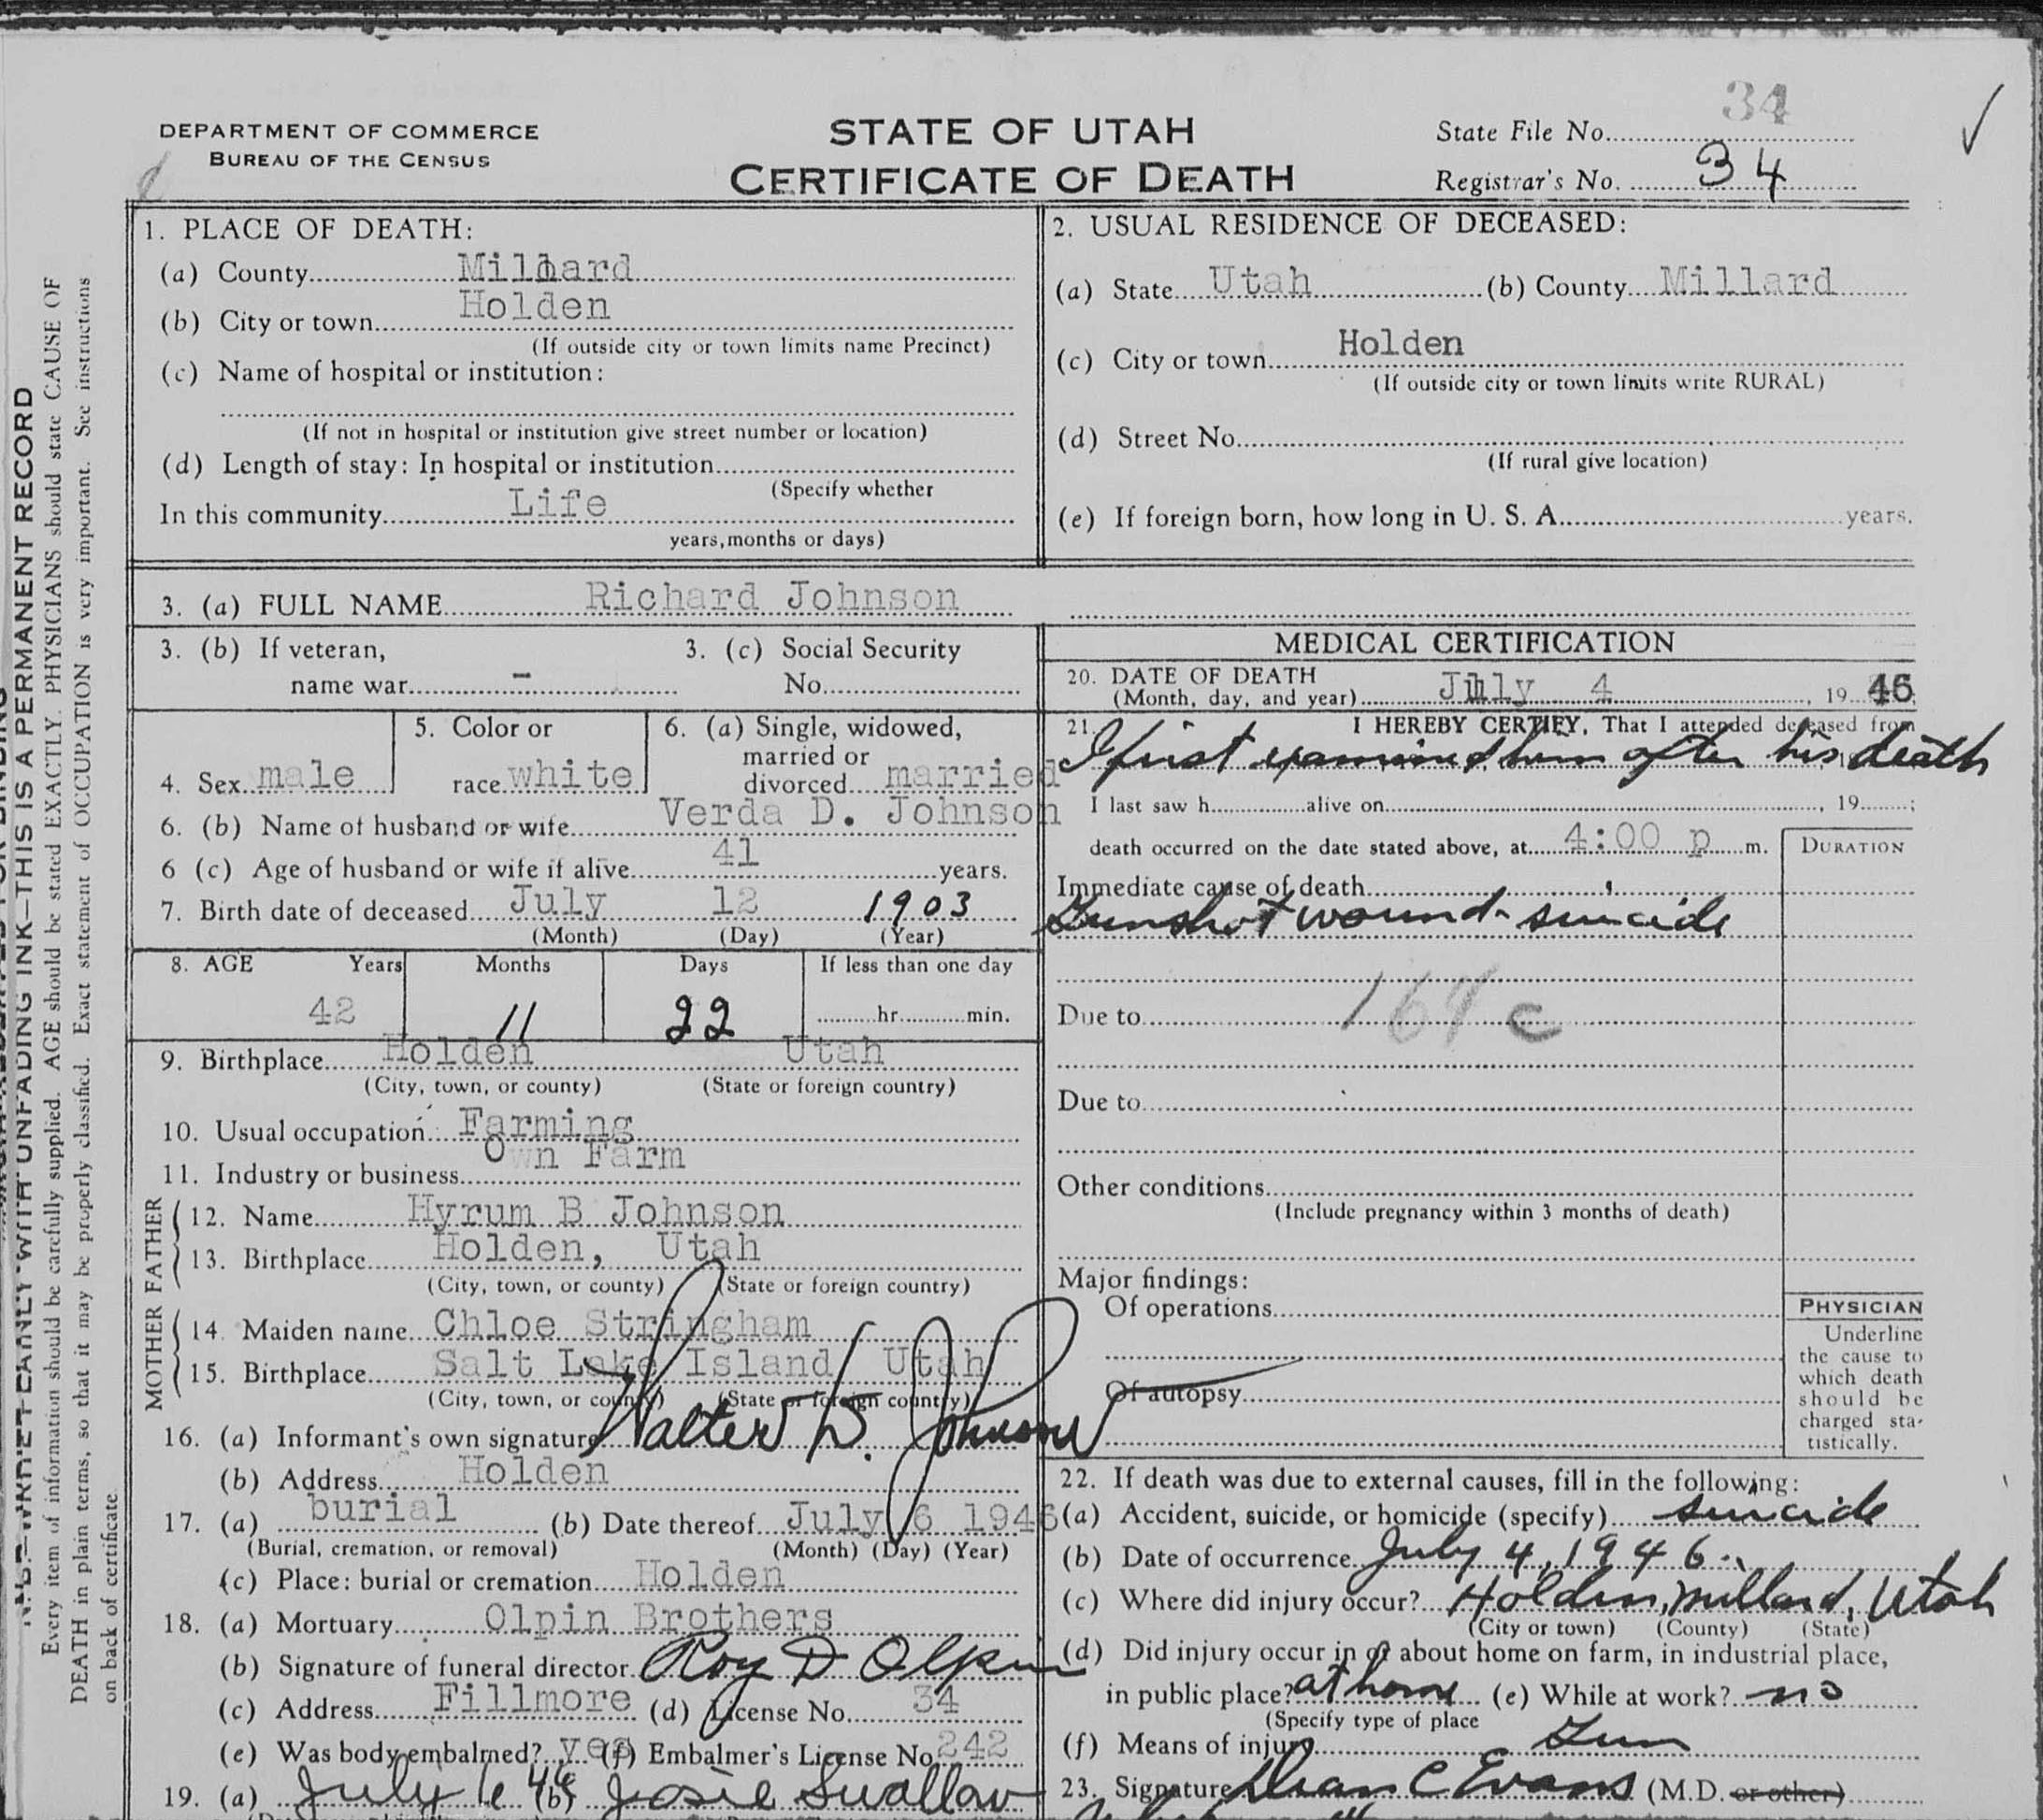 34
DEPARTMENT OF COMMERCE
BUREAU OF THE CENSUS
STATE OF UTAH
CERTIFICATE OF DEATH
State File No.
Registrar's No. 34
1. PLACE OF DEATH:
(a) County Millard
(b) City or town Holden
(If outside city or town limits name Precinct)
(c) Name of hospital or institution:
(If not in hospital or institution give street number or location)
(d) Length of stay: In hospital or institution
(Specify whether
In this community Life
years, months or days)
2. USUAL RESIDENCE OF DECEASED:
(a) State Utah (b) County Millard
(c) City or town Holden
(If outside city or town limits write RURAL)
(d) Street No.
(If rural give location)
(e) If foreign born, how long in U. S. A. years.
3. (a) FULL NAME Richard Johnson
3. (b) If veteran, 3. (c) Social Security
name war - No.
4. Sex male
5. Color or
race white
6. (a) Single, widowed,
married or
divorced married
6. (b) Name of husband or wife Verda D. Johnson
6 (c) Age of husband or wife if alive 41 years.
7. Birth date of deceased July 12 1903
(Month) (Day) (Year)
8. AGE Years Months Days If less than one day
42 11 22 hr. min.
9. Birthplace Holden Utah
(City, town, or county) (State or foreign country)
10. Usual occupation Farming
11. Industry or business Own Farm
FATHER
12. Name Hyrum B Johnson
13. Birthplace Holden, Utah
(City, town, or county) (State or foreign country)
MOTHER
14. Maiden name Chloe Stringham
15. Birthplace Salt Lake Island Utah
(City, town, or county) (State or foreign country)
16. (a) Informant's own signature Walter D. Johnson
(b) Address Holden
17. (a) burial (b) Date thereof July 6 1946
(Burial, cremation, or removal) (Month) (Day) (Year)
(c) Place: burial or cremation Holden
18. (a) Mortuary Olpin Brothers
(b) Signature of funeral director Roy D Olpin
(c) Address Fillmore (d) License No. 34
(e) Was body embalmed? yes (f) Embalmer's License No. 242
19. (a) July 6 46 (b) Josie Swallow
MEDICAL CERTIFICATION
20. DATE OF DEATH
(Month, day, and year) July 4, 1946
21. I HEREBY CERTIFY, That I attended deceased from
I first examined him after his death
I last saw h alive on , 19 ;
death occurred on the date stated above, at 4:00 p m.
DURATION
Immediate cause of death
Gunshot wound - suicide
Due to 164 c
Due to
Other conditions
(Include pregnancy within 3 months of death)
Major findings:
Of operations
Of autopsy
PHYSICIAN
Underline
the cause to
which death
should be
charged sta-
tistically.
22. If death was due to external causes, fill in the following:
(a) Accident, suicide, or homicide (specify) suicide
(b) Date of occurrence July 4, 1946
(c) Where did injury occur? Holden, Millard, Utah
(City or town) (County) (State)
(d) Did injury occur in or about home on farm, in industrial place,
in public place? at home (e) While at work? no
(Specify type of place
(f) Means of injury Gun
23. Signature Dean C Evans (M.D. or other)
THIS IS A PERMANENT RECORD
Every item of information should be carefully supplied. AGE should be stated EXACTLY. PHYSICIANS should state CAUSE OF
DEATH in plain terms, so that it may be properly classified. Exact statement of OCCUPATION is very important. See instructions
on back of certificate